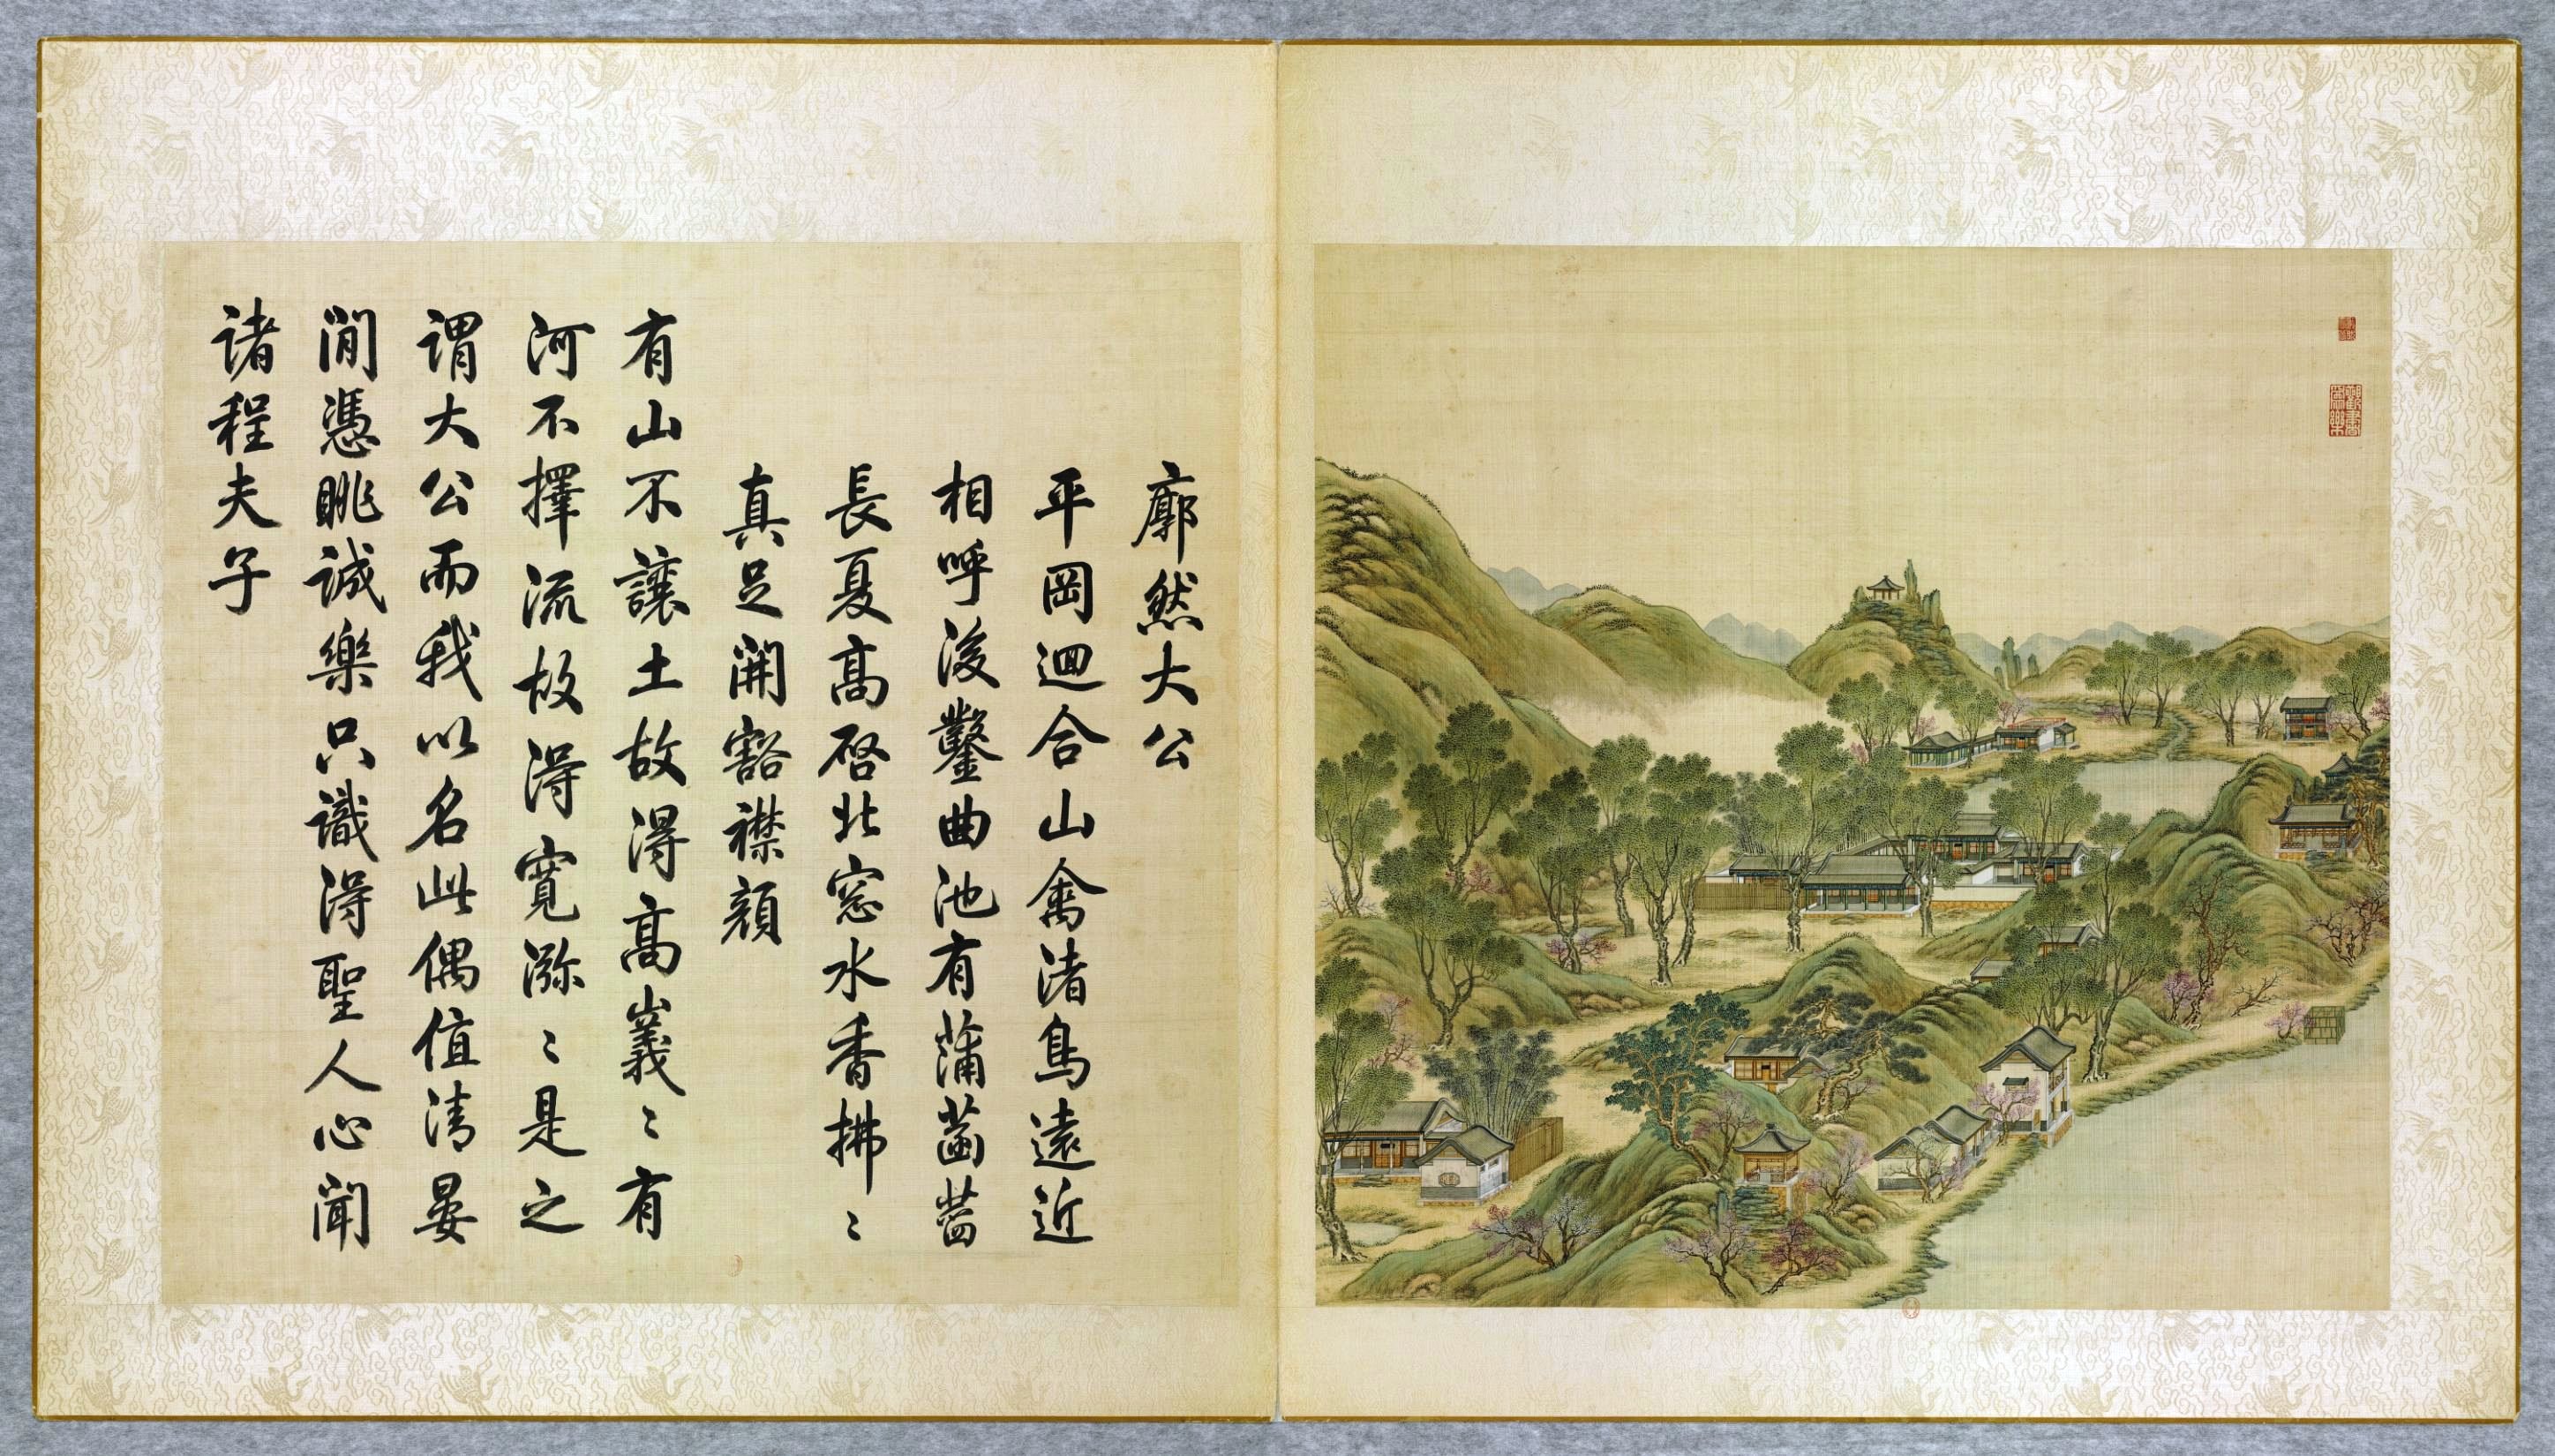 廓然大公
平岡迴合山禽渚鳥遠近
相呼後鑿曲池有蒲菡萏
長夏高啓北窓水香拂〻
真足開豁襟顏
有山不讓土故得高嶪〻有
河不擇流故得寬瀰〻是之
謂大公而我以名此偶值清晏
閒憑眺誠樂只識得聖人心聞
諸程夫子